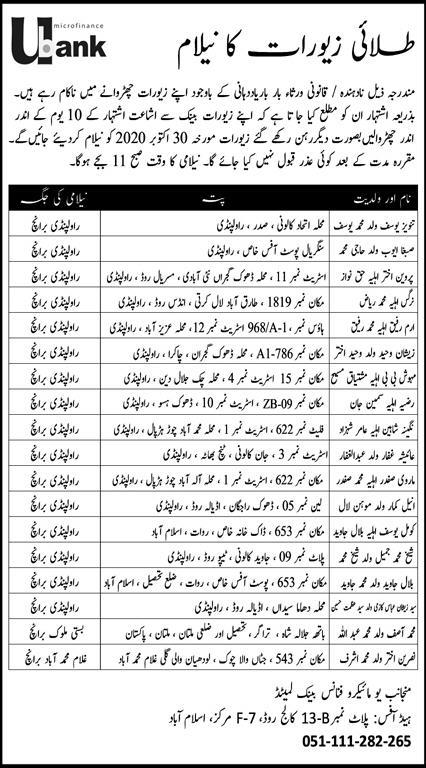 U:Bank
microfinance
طلائی زیورات کا نیلام
مندرجہ ذیل نادہندہ / قانونی ورثاء بار بار یاددہانی کے باوجود اپنے زیورات چھڑوانے میں ناکام رہے ہیں۔
بذریعہ اشتہار ان کو مطلع کیا جاتا ہے کہ اپنے زیورات بینک سے اشاعت اشتہار کے 10 یوم کے اندر
اندر چھڑوالیں بصورت دیگر رہن رکھے گئے زیورات مورخہ 30 اکتوبر 2020 کو نیلام کردیئے جائیں گے۔
مقررہ مدت کے بعد کوئی عذر قبول نہیں کیا جائے گا۔ نیلامی کا وقت صبح 11 بجے ہوگا۔
نام اور ولدیت پتہ نیلامی کی جگہ
تنویز یوسف ولد محمد یوسف محلہ اتحاد کالونی ، صدر ، راولپنڈی راولپنڈی برانچ
صبغا ایوب ولد حاجی محمد سنگریال پوسٹ آفس خاص ، راولپنڈی راولپنڈی برانچ
پروین اختر اہلیہ حق نواز اسٹریٹ نمبر 11 ، محلہ ڈھوک گجراں نئی آبادی ، مسریال روڈ ، راولپنڈی راولپنڈی برانچ
نرگس اہلیہ محمد ریاض مکان نمبر 1819 ، طارق آباد لال کرتی ، انڈس روڈ ، راولپنڈی راولپنڈی برانچ
ارم رفیق اہلیہ محمد رفیق ہاؤس نمبر 968/A-1، اسٹریٹ نمبر 12، محلہ عزیز آباد ، راولپنڈی راولپنڈی برانچ
زیشان وحید ولد وحید اختر مکان نمبر A1-786 ، محلہ ڈھوک گجران ، چاکرا ، راولپنڈی راولپنڈی برانچ
مہوش بی بی اہلیہ مشتیاق مسیح مکان نمبر 15 اسٹریٹ نمبر 4 ، محلہ چک جلال دین ، راولپنڈی راولپنڈی برانچ
رضیہ اہلیہ سمین جان مکان نمبر ZB-09 ، اسٹریٹ نمبر 10 ، ڈھوک ہسو ، راولپنڈی راولپنڈی برانچ
نگینہ شاہین اہلیہ عامر شہزاد فلیٹ نمبر 622 ، اسٹریٹ نمبر 1 ، محلہ محمد آباد چوڑ ہڑپال ، راولپنڈی راولپنڈی برانچ
عائیشہ غفار ولد عبدالغفار اسٹریٹ نمبر 3 ، جان کالونی ، ٹنچ بھاٹہ ، راولپنڈی راولپنڈی برانچ
ماروی صفدر اہلیہ محمد صفدر مکان نمبر 622 ، اسٹریٹ نمبر 1 ، محلہ آلہ آباد چوڑ ہڑپال ، راولپنڈی راولپنڈی برانچ
انیل کمار ولد موہن لال لین نمبر 05 ، ڈھوک راجگان ، اڈیالہ روڈ ، راولپنڈی راولپنڈی برانچ
کومل یوسف اہلیہ بلال جاوید مکان نمبر 653 ، ڈاک خانہ خاص ، روات ، اسلام آباد راولپنڈی برانچ
شیخ محمد جمیل ولد شیخ محمد پلاٹ نمبر 09 ، جاوید کالونی ، ٹیپو روڈ ، راولپنڈی راولپنڈی برانچ
بلال جاوید ولد محمد جاوید مکان نمبر 653 ، پوسٹ آفس خاص ، روات ، ضلع تحصیل ، اسلام آباد راولپنڈی برانچ
سید زیشان عباس کاظمی ولد سید عظمت حسین محلہ دھما سیداں ، اڈیالہ روڈ ، راولپنڈی راولپنڈی برانچ
محمد آصف ولد محمد عبد اللہ باتھ جلالہ شاہ ، تراگر ، تحصیل اور ضلعی ملتان ، ملتان ، پاکستان بستی ملوک برانچ
نصرین اختر ولد محمد اشرف مکان نمبر 543 ، جٹاں والا چوک ، لودھیاں والی گلی غلام محمد آباد غلام محمد آباد برانچ
منجانب یو مائیکرو فنانس بینک لمیٹڈ
ہیڈ آفس: پلاٹ نمبر 13-B کالج روڈ، F-7 مرکز، اسلام آباد
051-111-282-265